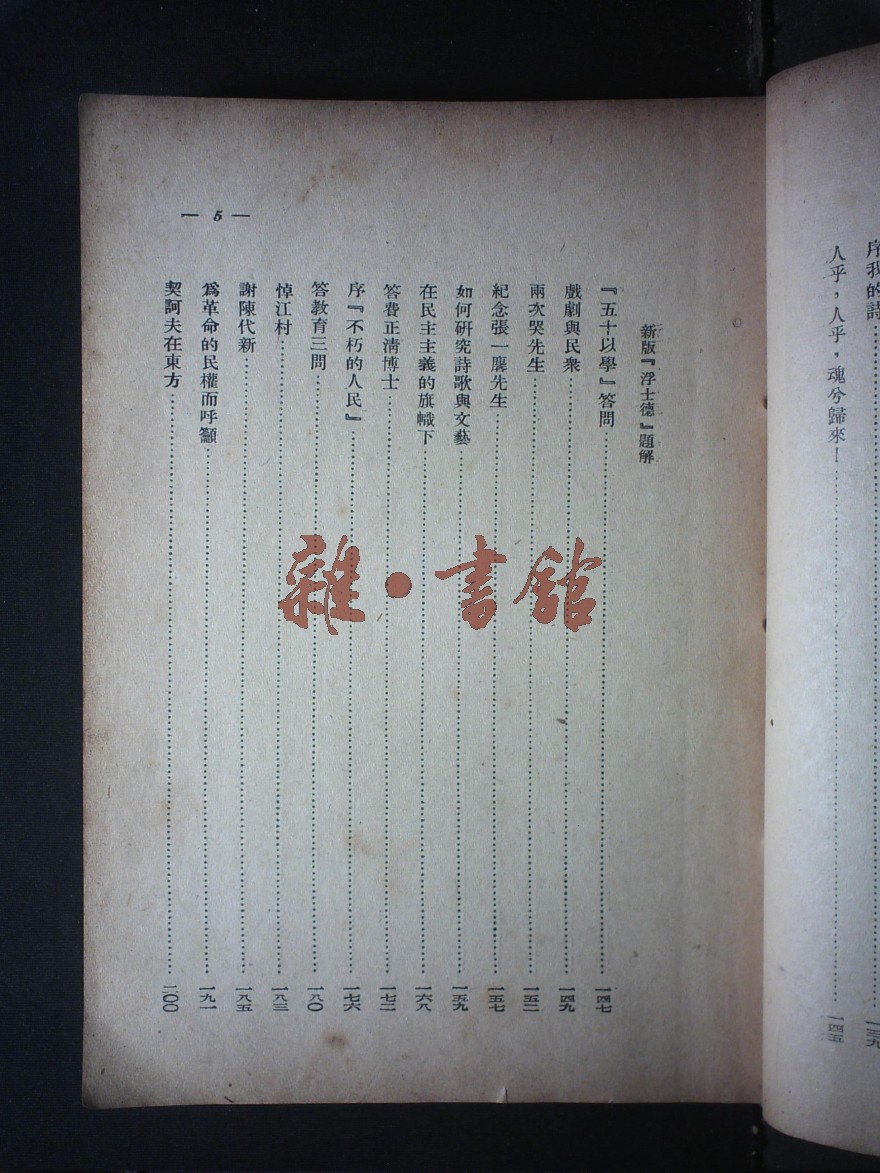 序我的詩…………一三九
人乎，人乎，魂兮歸來！…………一四五
— 5 —
新版『浮士德』題解
『五十以學』答問…………一四七
戲劇與民衆…………一四九
兩次哭先生…………一五二
紀念張一麐先生…………一五七
如何研究詩歌與文藝…………一五九
在民主主義的旗幟下…………一六八
答費正淸博士…………一七二
序『不朽的人民』…………一七六
答教育三問…………一八〇
悼江村…………一八三
謝陳代新…………一八五
爲革命的民權而呼籲…………一九一
契訶夫在東方…………二〇〇
雜·書館